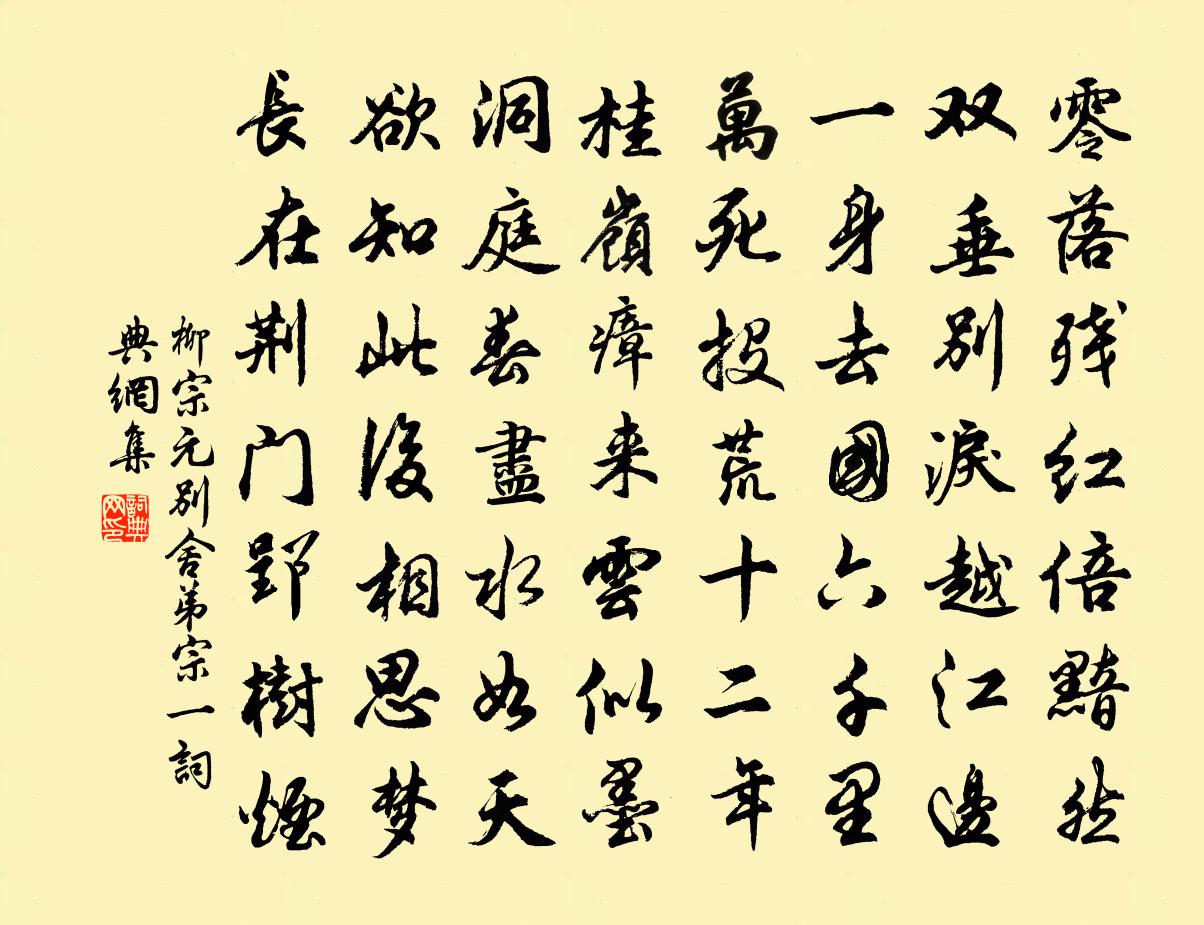 零落残红倍黯然
双垂别淚越江邊
一身去國六千里
萬死投荒十二年
桂嶺瘴来雲似墨
洞庭春盡水如天
欲知此後相思梦
長在荆门郢樹煙
柳宗元别舍弟宗一詞
典網集
詞典
网印